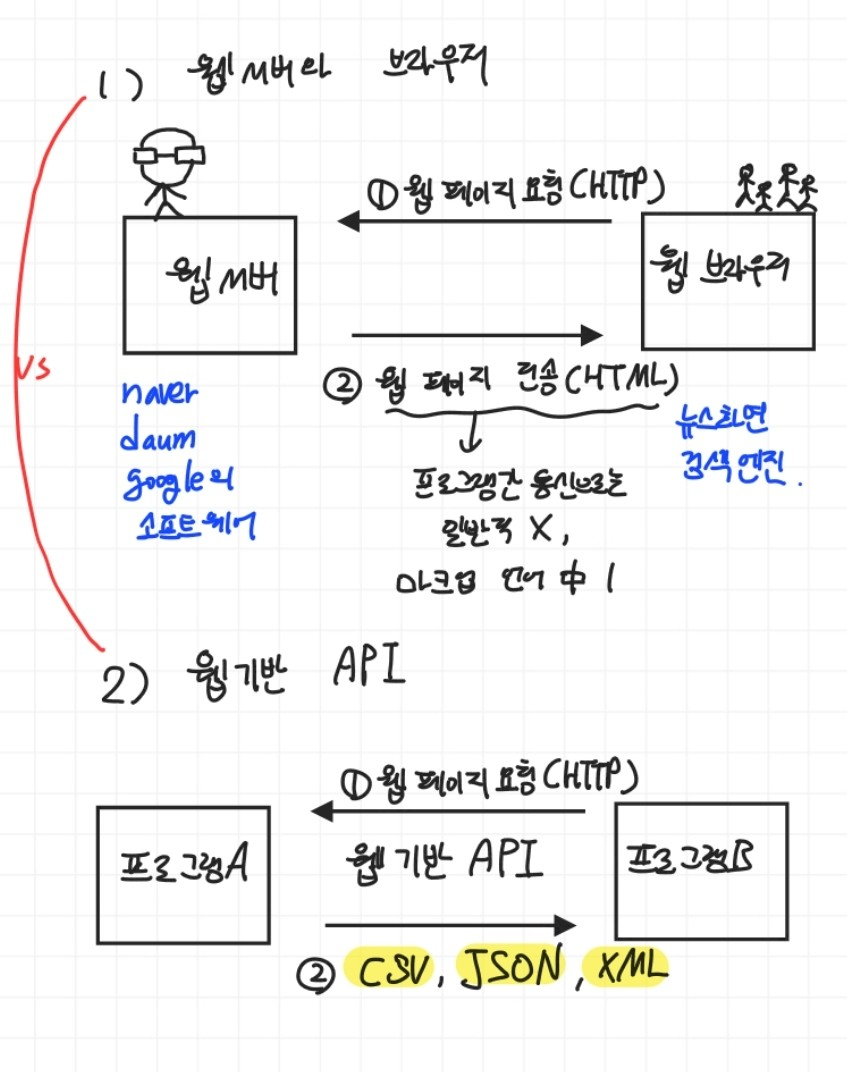 1) 웹서버와 브라우저
① 웹 페이지 요청(HTTP)
웹서버
웹 브라우저
② 웹 페이지 전송(HTML)
vs
naver
daum
google의
소프트웨어
뉴스화면
검색엔진.
프로그램간 통신으로는
일반적 X,
마크업 언어 中 1
2) 웹기반 API
① 웹 페이지 요청(HTTP)
프로그램A
웹 기반 API
프로그램B
② CSV, JSON, XML